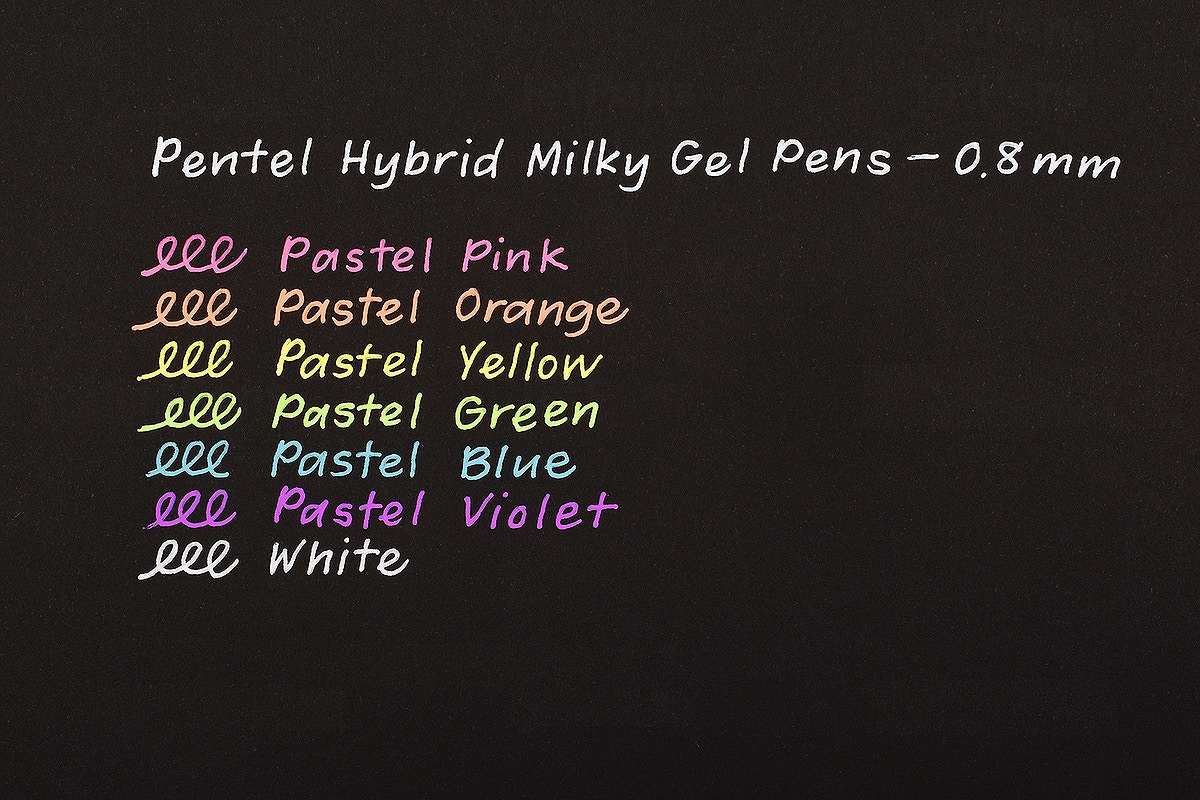 Pentel Hybrid Milky Gel Pens – 0.8mm
Pastel Pink
Pastel Orange
Pastel Yellow
Pastel Green
Pastel Blue
Pastel Violet
White